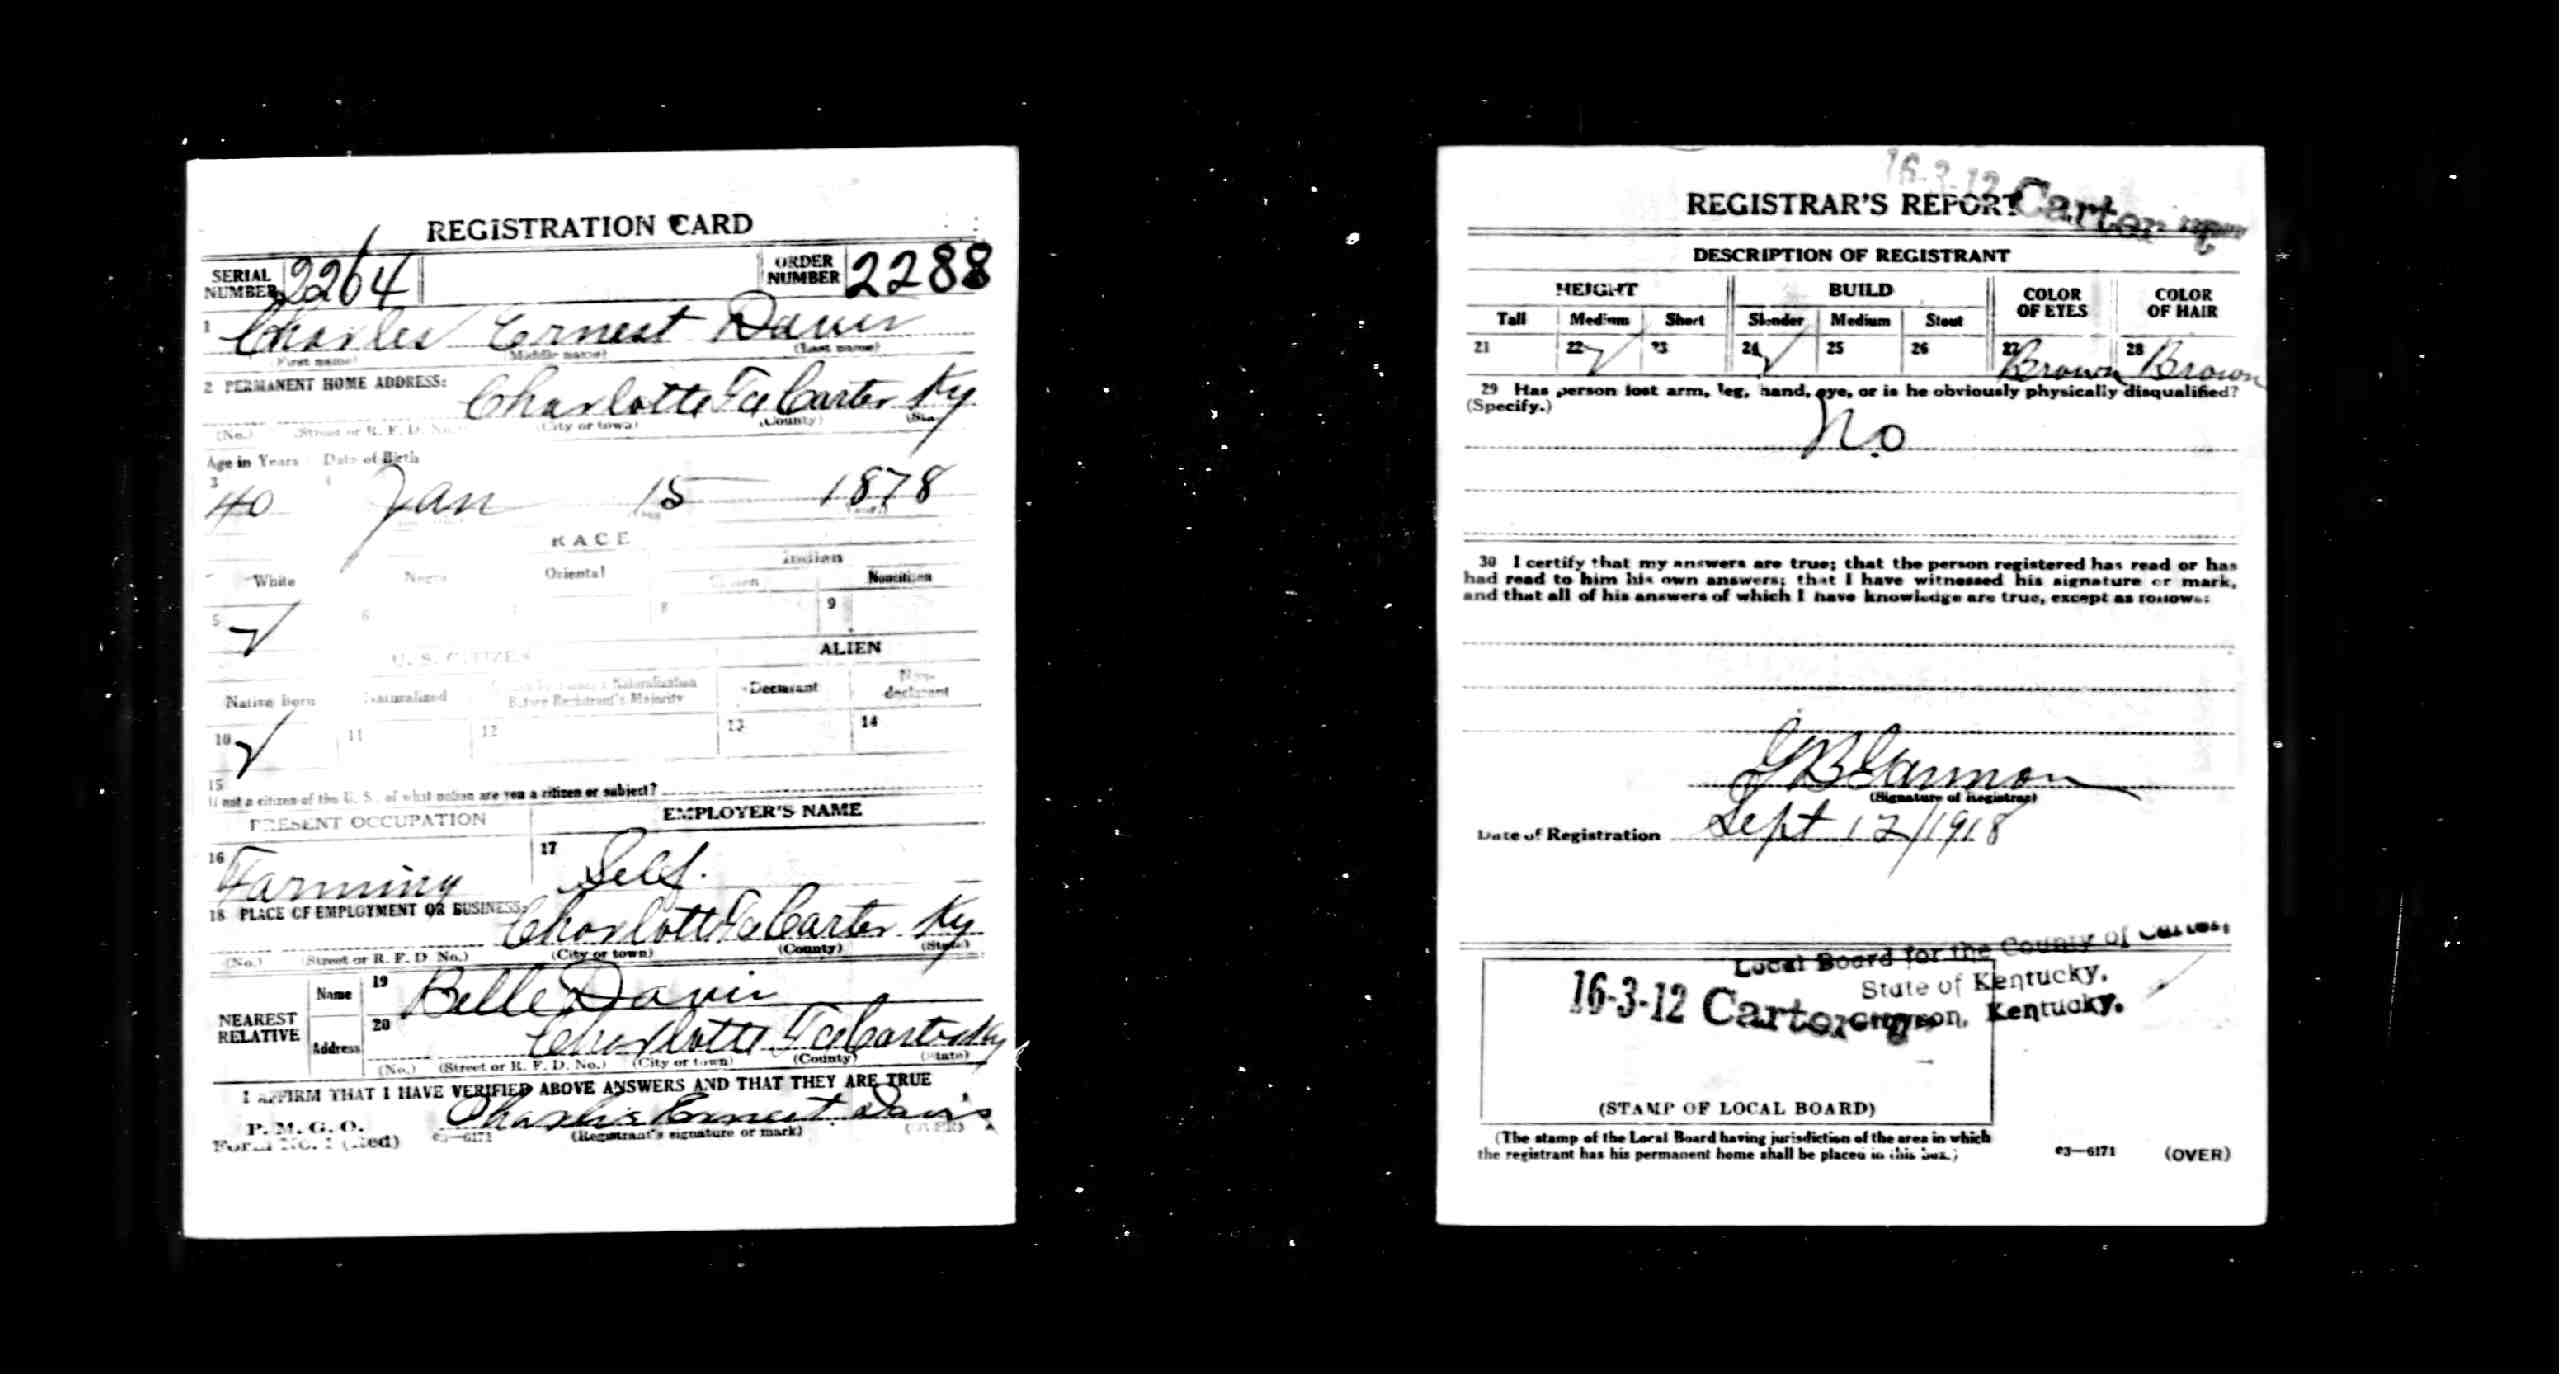 REGISTRATION CARD
SERIAL NUMBER 2264 ORDER NUMBER 2288
1 Charles Ernest Davis
(First name) (Middle name) (Last name)
2 PERMANENT HOME ADDRESS:
Charlotte Fce Carter Ky.
(No.) (Street or R. F. D. No.) (City or town) (County) (State)
Age in Years Date of Birth
3 4
40 Jan 15 1878
RACE
White Negro Oriental Indian
Citizen Noncitizen
5 ✓ 6 7 8 9
U. S. CITIZEN ALIEN
Native Born Naturalized Citizen by Father's Naturalization Before Registrant's Majority Declarant Non-declarant
10 ✓ 11 12 13 14
15
If not a citizen of the U. S., of what nation are you a citizen or subject?
PRESENT OCCUPATION EMPLOYER'S NAME
16 Farming 17 Self.
18 PLACE OF EMPLOYMENT OR BUSINESS:
Charlotte Fce Carter Ky
(No.) (Street or R. F. D. No.) (City or town) (County) (State)
NEAREST RELATIVE
Name 19 Belle Davis
Address 20 Charlotte Fce Carter Ky
(No.) (Street or R. F. D. No.) (City or town) (County) (State)
I AFFIRM THAT I HAVE VERIFIED ABOVE ANSWERS AND THAT THEY ARE TRUE
P. M. G. O.
Form No. 1 (Red) 03—6171 Charlie Ernest Davis
(Registrant's signature or mark) (OVER)
16-3-12 Carter
REGISTRAR'S REPORT
DESCRIPTION OF REGISTRANT
HEIGHT BUILD COLOR OF EYES COLOR OF HAIR
Tall Medium Short Slender Medium Stout
21 22 ✓ 23 24 ✓ 25 26 27 Brown 28 Brown
29 Has person lost arm, leg, hand, eye, or is he obviously physically disqualified?
(Specify.)
No
30 I certify that my answers are true; that the person registered has read or has
had read to him his own answers; that I have witnessed his signature or mark,
and that all of his answers of which I have knowledge are true, except as follows:
(Signature of Registrar)
Date of Registration Sept 12/1918
Local Board for the County of Carter,
State of Kentucky,
Grayson, Kentucky.
16-3-12 Carter
(STAMP OF LOCAL BOARD)
(The stamp of the Local Board having jurisdiction of the area in which
the registrant has his permanent home shall be placed in this box.)
03—6171 (OVER)